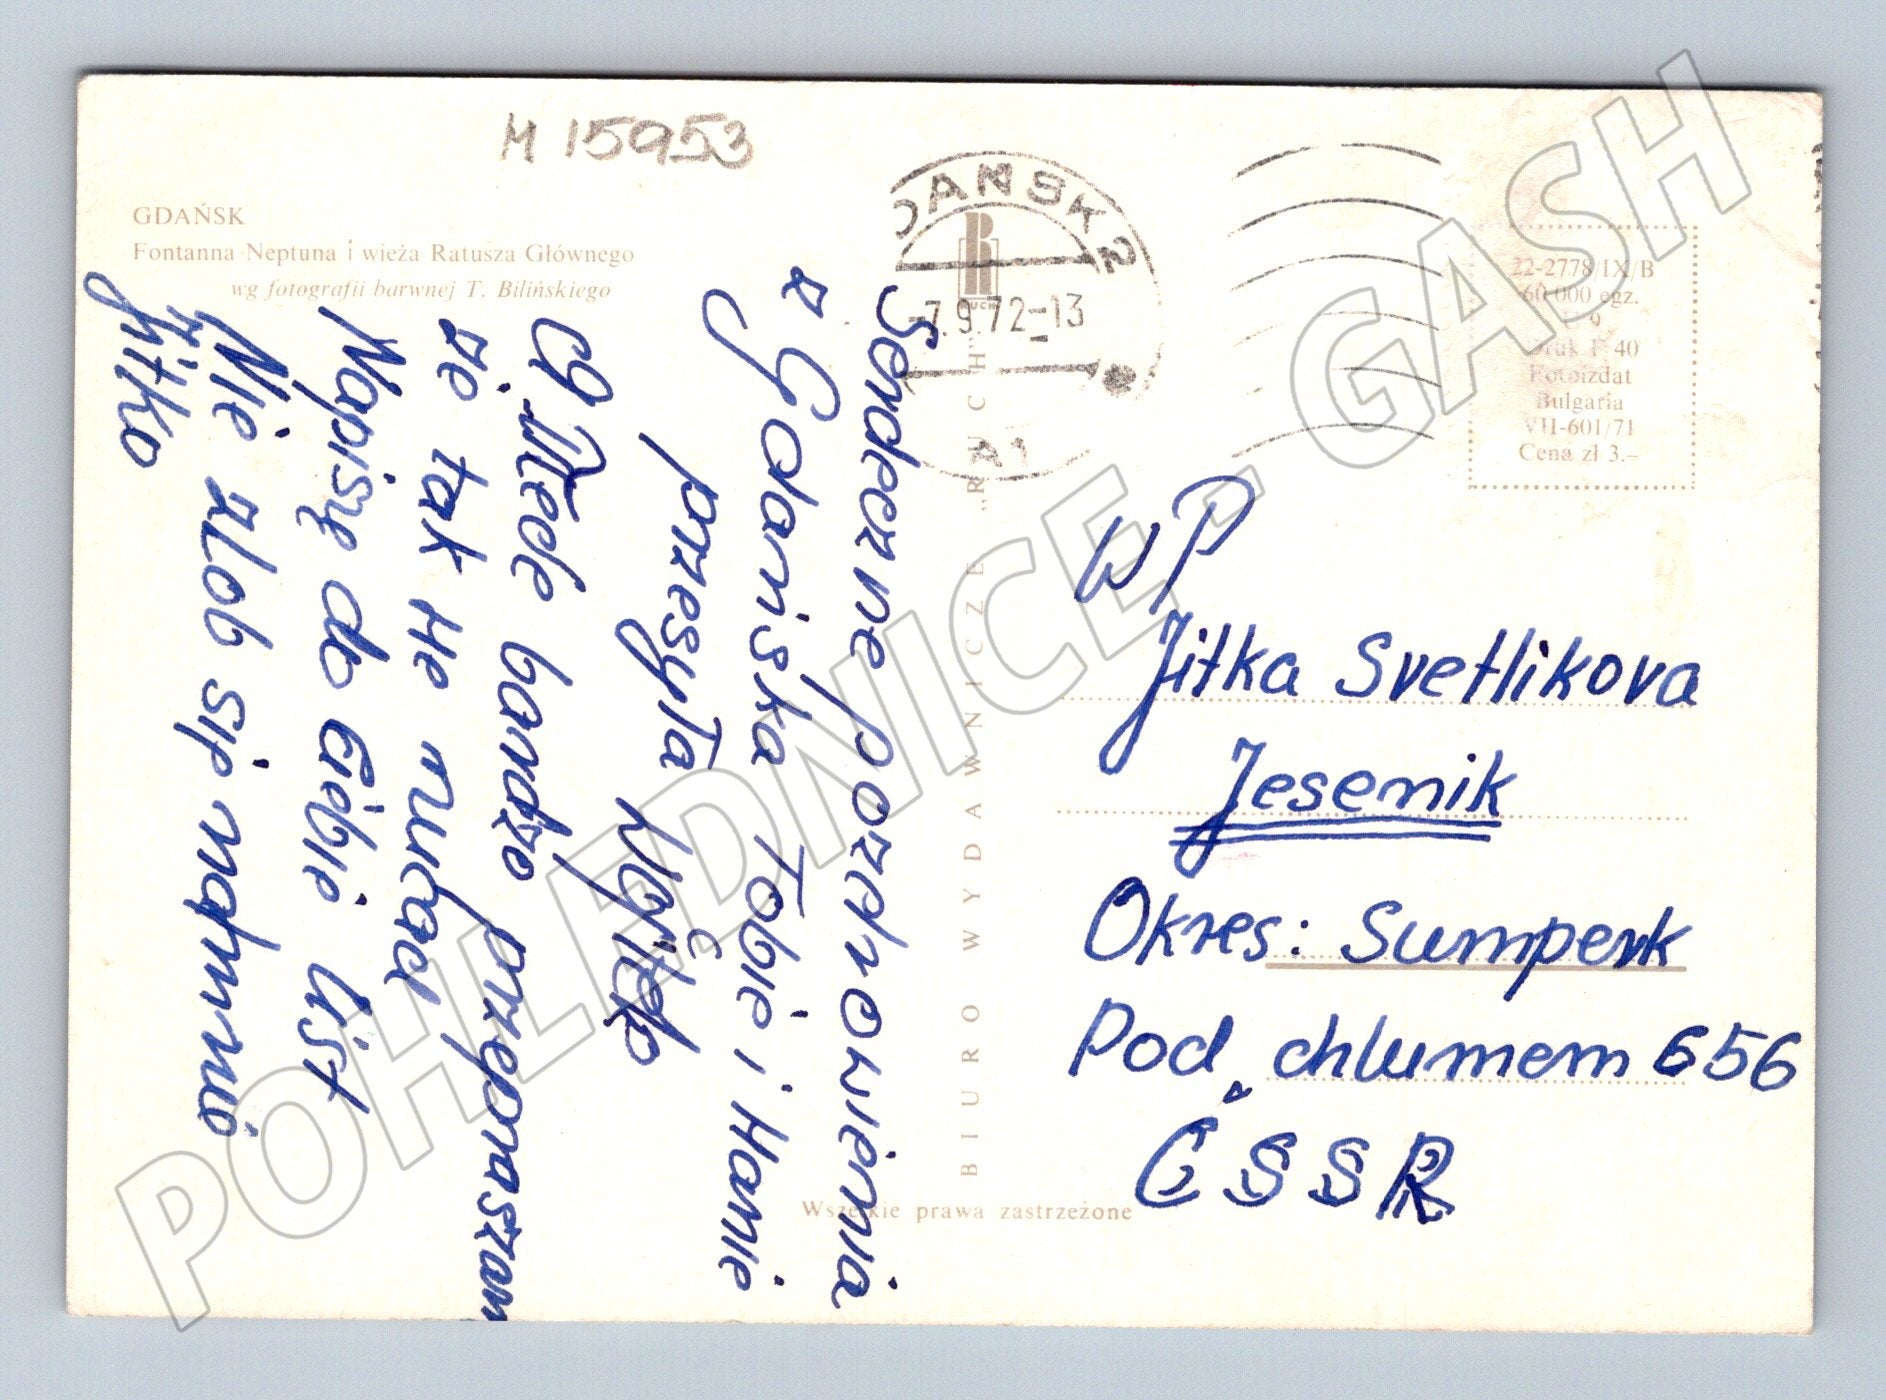 M 15953
GDAŃSK
Fontanna Neptuna i wieża Ratusza Głównego
wg fotografii barwnej T. Bilińskiego
GDAŃSK 2
-7.9.72-13
A1
RUCH
22-2778/IX/B
60 000 egz.
Druk F 40
Fotoizdat
Bulgaria
VII-601/71
Cena zł 3.–
Serdeczne pozdrowienia
z Gdańska Tobie i Hanie
przesyła
Ciebie bardzo przepraszam
że tak
Napiszę do Ciebie list
Nie złob się na mnie
Jitko
BIURO WYDAWNICZE „RUCH”
Wszelkie prawa zastrzeżone
WP
Jitka Svetlikova
Jesenik
Okres: Sumperk
Pod chlumem 656
ČSSR
POHLEDNICE - GASH